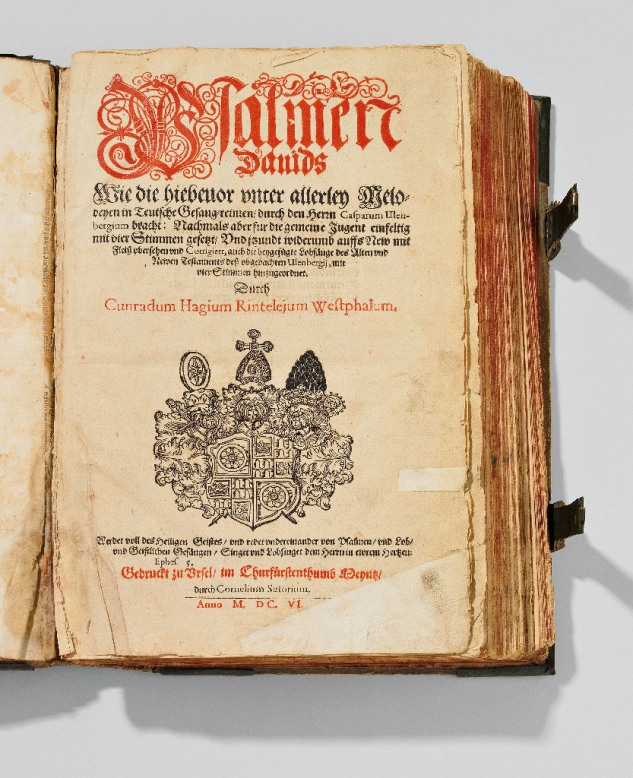 Psalmen
Dauids
Wie die hiebeuor vnter allerley Melo-
deyen in Teutsche Gesangreimen / durch den Herrn Casparum Vlen-
bergium bracht: Nachmals aber fur die gemeine Jugent einfeltig
mit vier Stimmen gesetzt / Vnd jtzundt widerumb auffs New mit
Fleiß vbersehen vnd Corrigiert, auch die beygefügte Lobsänge des Alten vnd
Newen Testaments deß obgedachten Vlenbergij, mit
vier Stimmen hinzugeordnet.
Durch
Cunradum Hagium Rintelejum Westphalum.
Werdet voll des Heiligen Geistes / vnd redet vndereinander von Psalmen / vnd Lob-
vnd Geistlichen Gesängen / Singet vnd Lobsinget dem Herrn in ewrem Hertzen.
Ephes 5.
Gedruckt zu Vrsel / im Churfürstenthumb Meyntz /
durch Cornelium Sutorium.
Anno M. DC. VI.